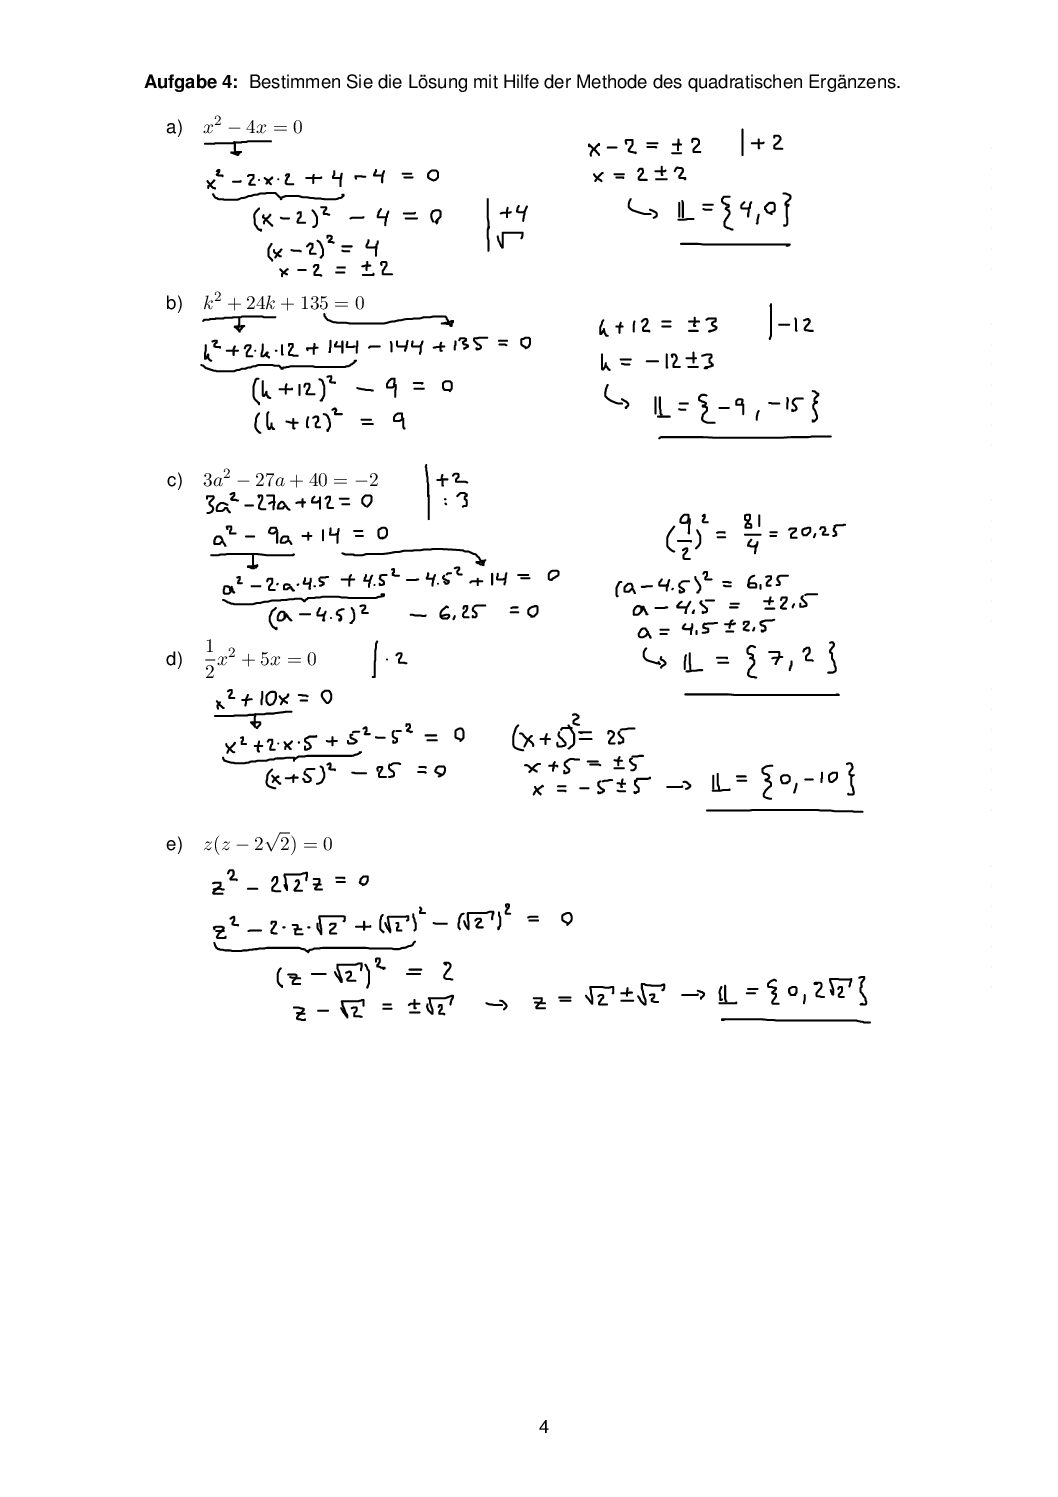 Aufgabe 4: Bestimmen Sie die Lösung mit Hilfe der Methode des quadratischen Ergänzens.
a) x² − 4x = 0
x² − 2·x·2 + 4 − 4 = 0
(x − 2)² − 4 = 0 | +4
(x − 2)² = 4 | √
x − 2 = ± 2
x − 2 = ± 2 | + 2
x = 2 ± 2
↪ 𝕃 = {4,0}
b) k² + 24k + 135 = 0
k² + 2·k·12 + 144 − 144 + 135 = 0
(k + 12)² − 9 = 0
(k + 12)² = 9
k + 12 = ± 3 | −12
k = −12 ± 3
↪ 𝕃 = {−9, −15}
c) 3a² − 27a + 40 = −2 | +2
3a² − 27a + 42 = 0 : 3
a² − 9a + 14 = 0
a² − 2·a·4.5 + 4.5² − 4.5² + 14 = 0
(a − 4.5)² − 6,25 = 0
(9/2)² = 81/4 = 20,25
(a − 4.5)² = 6,25
a − 4.5 = ± 2.5
a = 4.5 ± 2.5
↪ 𝕃 = {7, 2}
d) 1/2 x² + 5x = 0 | · 2
x² + 10x = 0
x² + 2·x·5 + 5² − 5² = 0
(x + 5)² − 25 = 0
(x + 5)² = 25
x + 5 = ± 5
x = − 5 ± 5 → 𝕃 = {0, −10}
e) z(z − 2√2) = 0
z² − 2√2 z = 0
z² − 2·z·√2 + (√2)² − (√2)² = 0
(z − √2)² = 2
z − √2 = ± √2 → z = √2 ± √2 → 𝕃 = {0, 2√2}
4